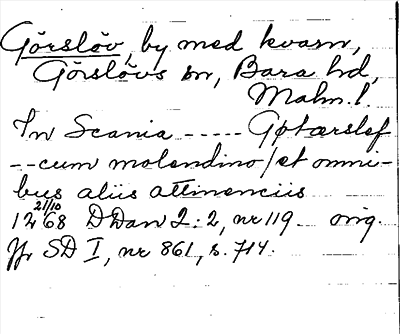 Görslöv, by med kvarn,
Görslövs sn, Bara hd,
Malm. l.
In Scania ----- Gøtærslef
-- cum molendino / et omni-
bus aliis attinenciis
21/10
1268 DDan 2:2, nr 119 orig.
Jfr SD I, nr 861, s. 714.